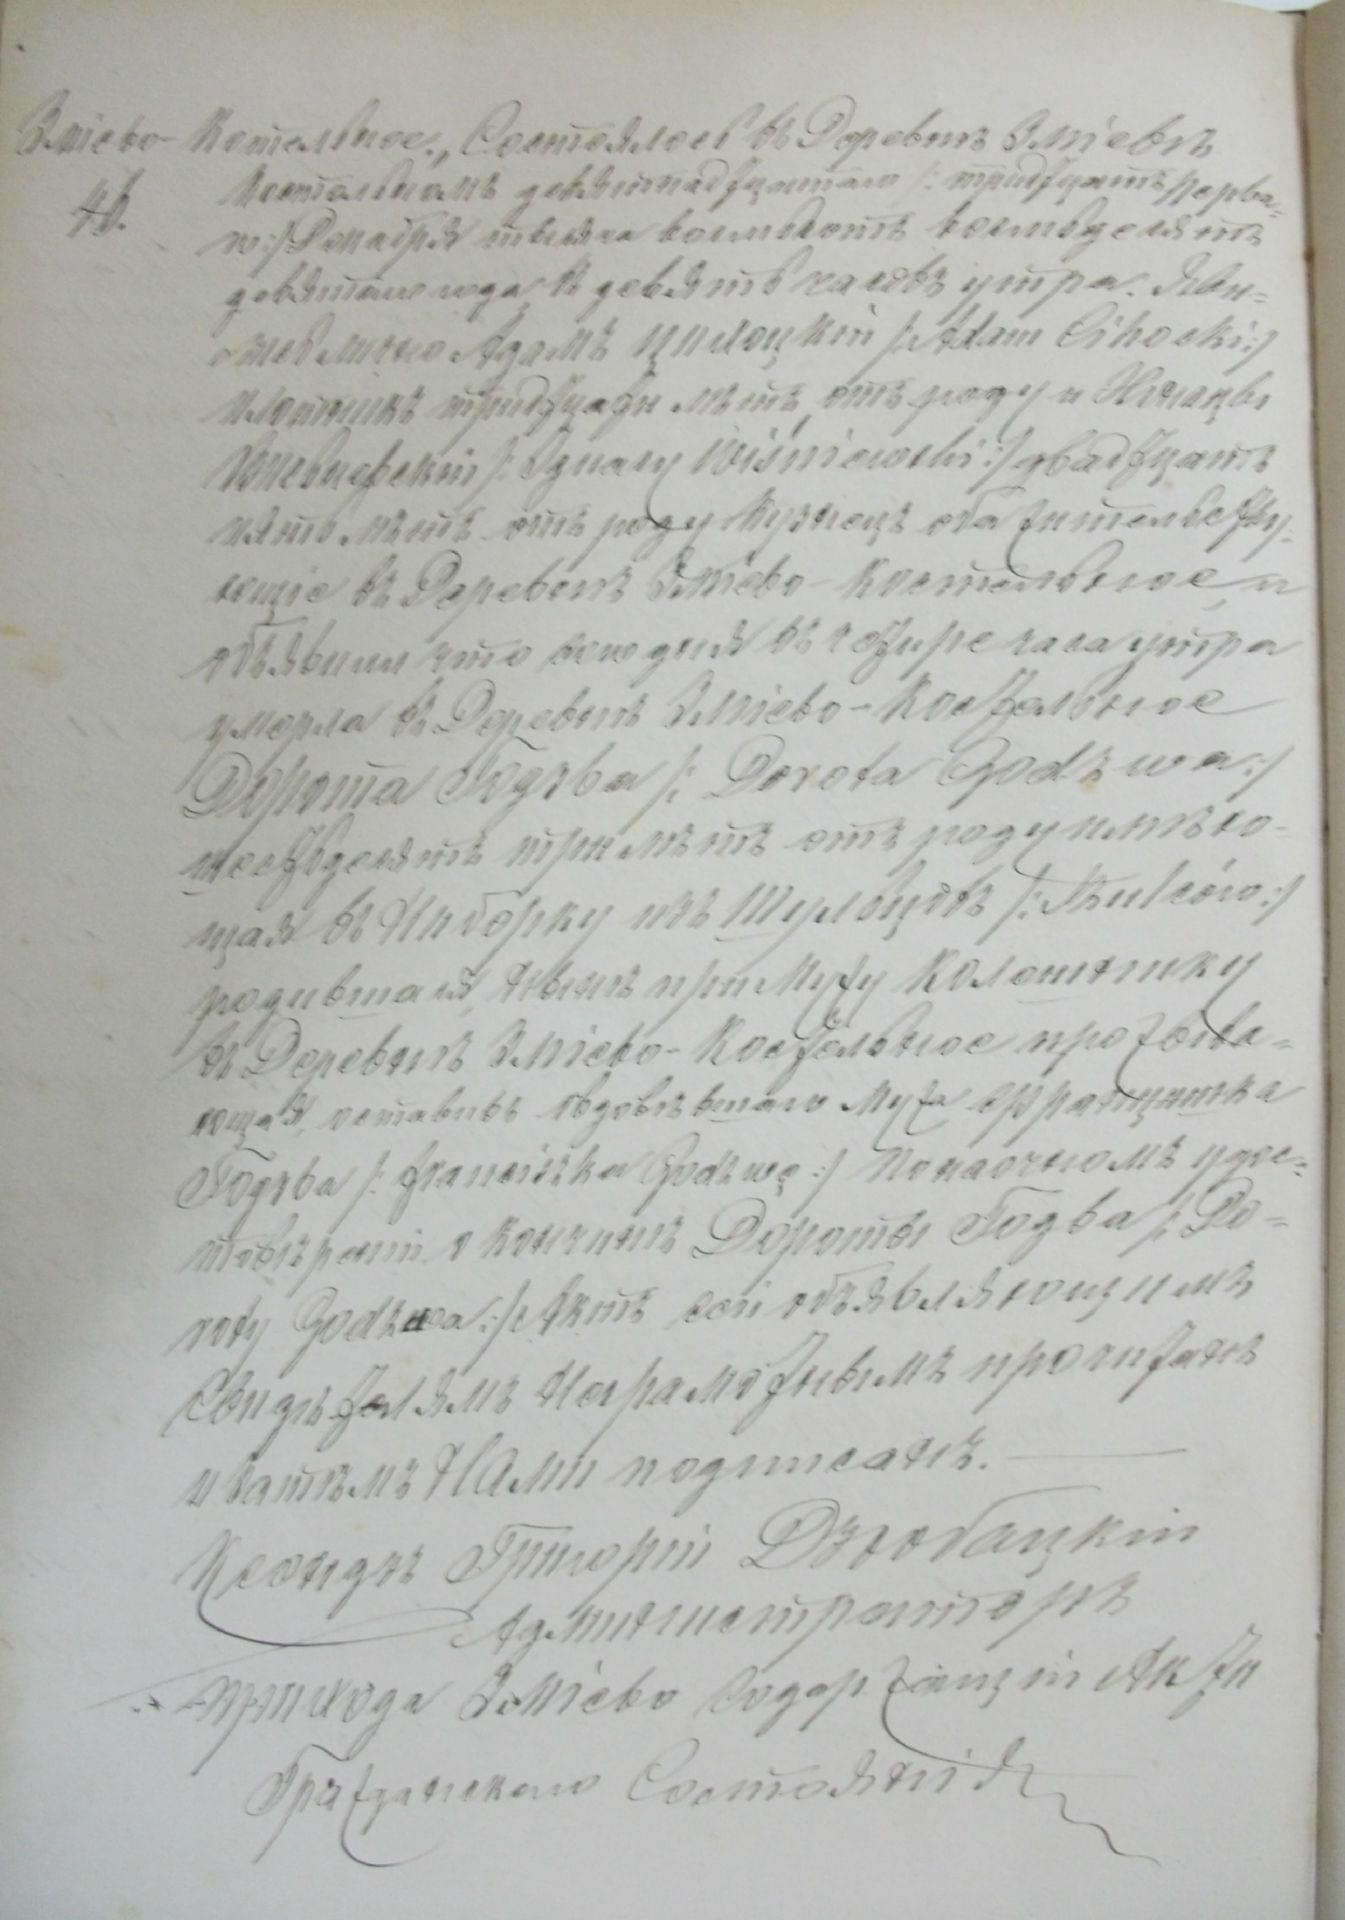 Змiево-Костельное. Состоялось въ Деревнѣ Змiевѣ
46. Костельномъ девятнадцатаго /: тридцать перва-
го :/ Декабря тысяча восемьсотъ восемьдесятъ
девятаго года въ девять часовъ утра. Яви-
лись лично Адамъ /: Adam :/
лѣтъ отъ роду и Игнацы
Висьневскiй /: Ignacy Wiśniewski :/ двадцать
пять лѣтъ отъ роду Кузнецъ оба жительству-
ющiе въ Деревнѣ Змiево-Костельное, и
объявили что сего дня въ четыре часа утра
умерла въ Деревнѣ Змiево-Костельное
Дорота Годзва /: Dorota Godzwa :/
шестьдесятъ три лѣтъ отъ роду
щая въ изъ Шульцовъ /: Szulców :/
родившая, нынѣ при Мужу Колонику
въ Деревнѣ Змiево-Костельное прожива-
ющая, оставивъ овдовѣвшаго Мужа Францишка
Годзва /: Franciszka Godzwę :/ По наочномъ удос-
товѣренiи о кончинѣ Дороты Годзва /: Do-
roty Godzwa :/ Актъ сей объявляющимъ
Свидѣтелямъ Неграмотнымъ прочитанъ
и затѣмъ Нами подписанъ.
Ксендзъ Григорiй
Администраторъ
прихода Змiево Содержащiй Акты
Гражданскаго Состоянiя